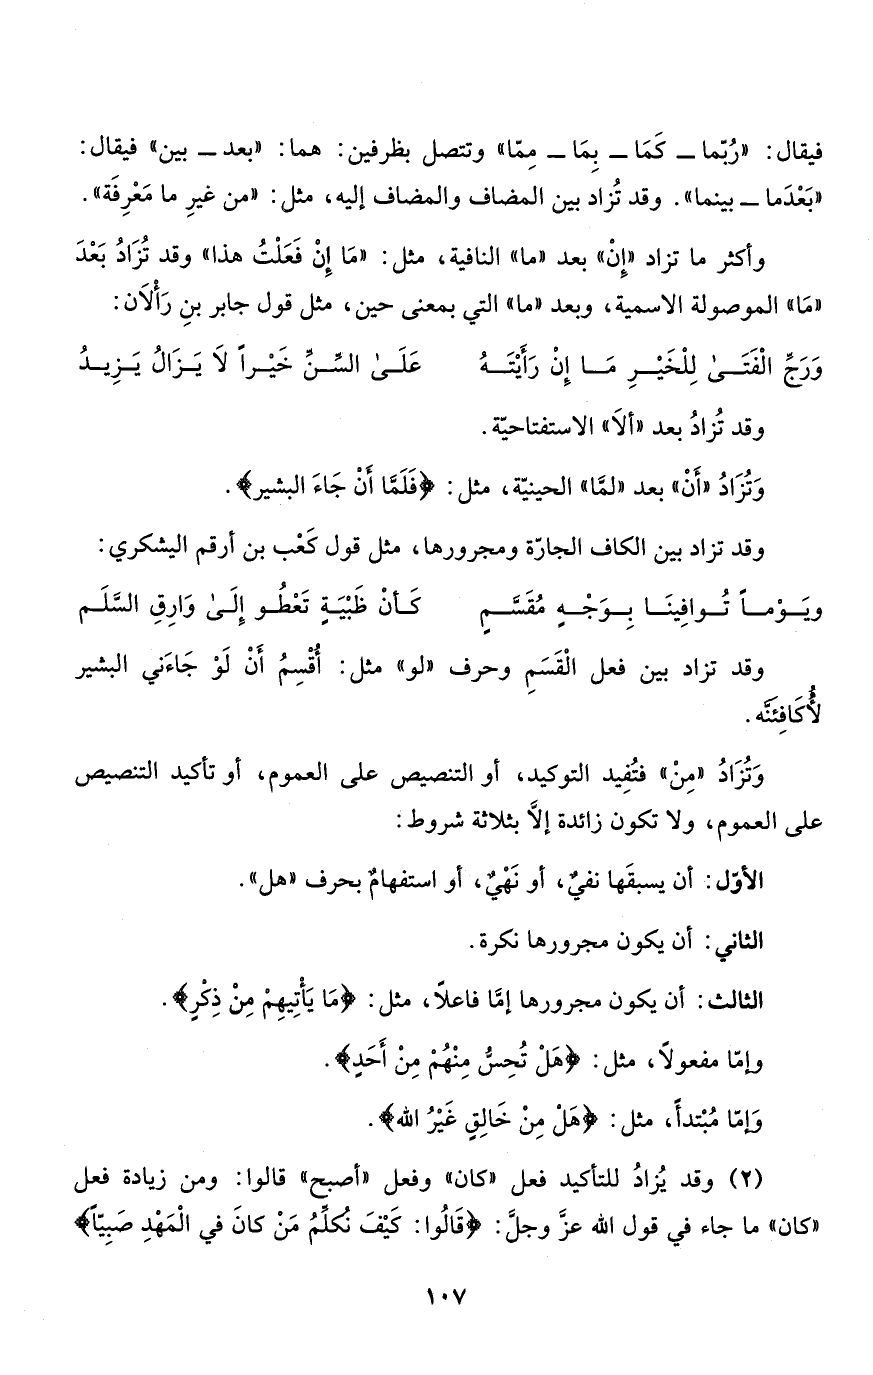 فيقال: «رُبّما ــ كَمَا ــ بِمَا ــ مِمّا» وتتصل بظرفين: هما: «بعد ــ بين» فيقال:
«بَعْدَما ــ بينما». وقد تُزاد بين المضاف والمضاف إليه، مثل: «من غيرِ ما مَعْرِفَة».
وأكثر ما تزاد «إِنْ» بعد «ما» النافية، مثل: «مَا إِنْ فَعَلْتُ هذا» وقد تُزَادُ بَعْدَ
«مَا» الموصولة الاسمية، وبعد «ما» التي بمعنى حين، مثل قول جابر بنِ رَأْلَان:
وَرَجِّ الْفَتَـىٰ لِلْخَيْـرِ مَـا إِنْ رَأَيْتَـهُ عَلَـىٰ السِّـنِّ خَيْـراً لَا يَـزَالُ يَـزِيـدُ
وقد تُزادُ بعد «ألَا» الاستفتاحيّة.
وَتُزَادُ «أَنْ» بعد «لمَّا» الحينيّة، مثل: ﴿فَلَمَّا أَنْ جَاءَ البشير﴾.
وقد تزاد بين الكاف الجارّة ومجرورها، مثل قول كَعْب بن أرقم اليشكري:
ويَـوْمـاً تُـوافِينَـا بِـوَجْـهٍ مُقَسَّـمٍ كَـأنْ ظَبْيَـةٍ تَعْطُـو إِلَـىٰ وَارِقِ السَّلَـم
وقد تزاد بين فعل الْقَسَمِ وحرف «لو» مثل: أُقْسِمُ أَنْ لَوْ جَاءَني البشير
لأُكَافِئَنَّه.
وَتُزَادُ «مِنْ» فتُفِيد التوكيد، أو التنصيص على العموم، أو تأكيد التنصيص
على العموم، ولا تكون زائدة إلاَّ بثلاثة شروط:
الأوّل: أن يسبقَها نفيٌ، أو نَهْيٌ، أو استفهامٌ بحرف «هل».
الثاني: أن يكون مجرورها نكرة.
الثالث: أن يكون مجرورها إمَّا فاعلاً، مثل: ﴿مَا يَأْتِيهِمْ مِنْ ذِكْرٍ﴾.
وإمّا مفعولاً، مثل: ﴿هَلْ تُحِسُّ مِنْهُمْ مِنْ أَحَدٍ﴾.
وَإمّا مُبْتدأً، مثل: ﴿هَلْ مِنْ خَالِقٍ غَيْرُ الله﴾.
(٢) وقد يُزادُ للتأكيد فعل «كان» وفعل «أصبح» قالوا: ومن زيادة فعل
«كان» ما جاء في قول الله عزَّ وجلَّ: ﴿قَالُوا: كَيْفَ نُكلِّمُ مَنْ كانَ في الْمَهْدِ صَبِيّاً﴾
١٠٧